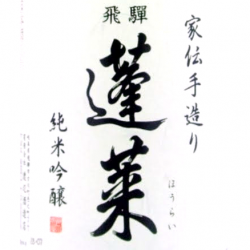 飛騨
家伝手造り
蓬莱
ほうらい
純米吟醸